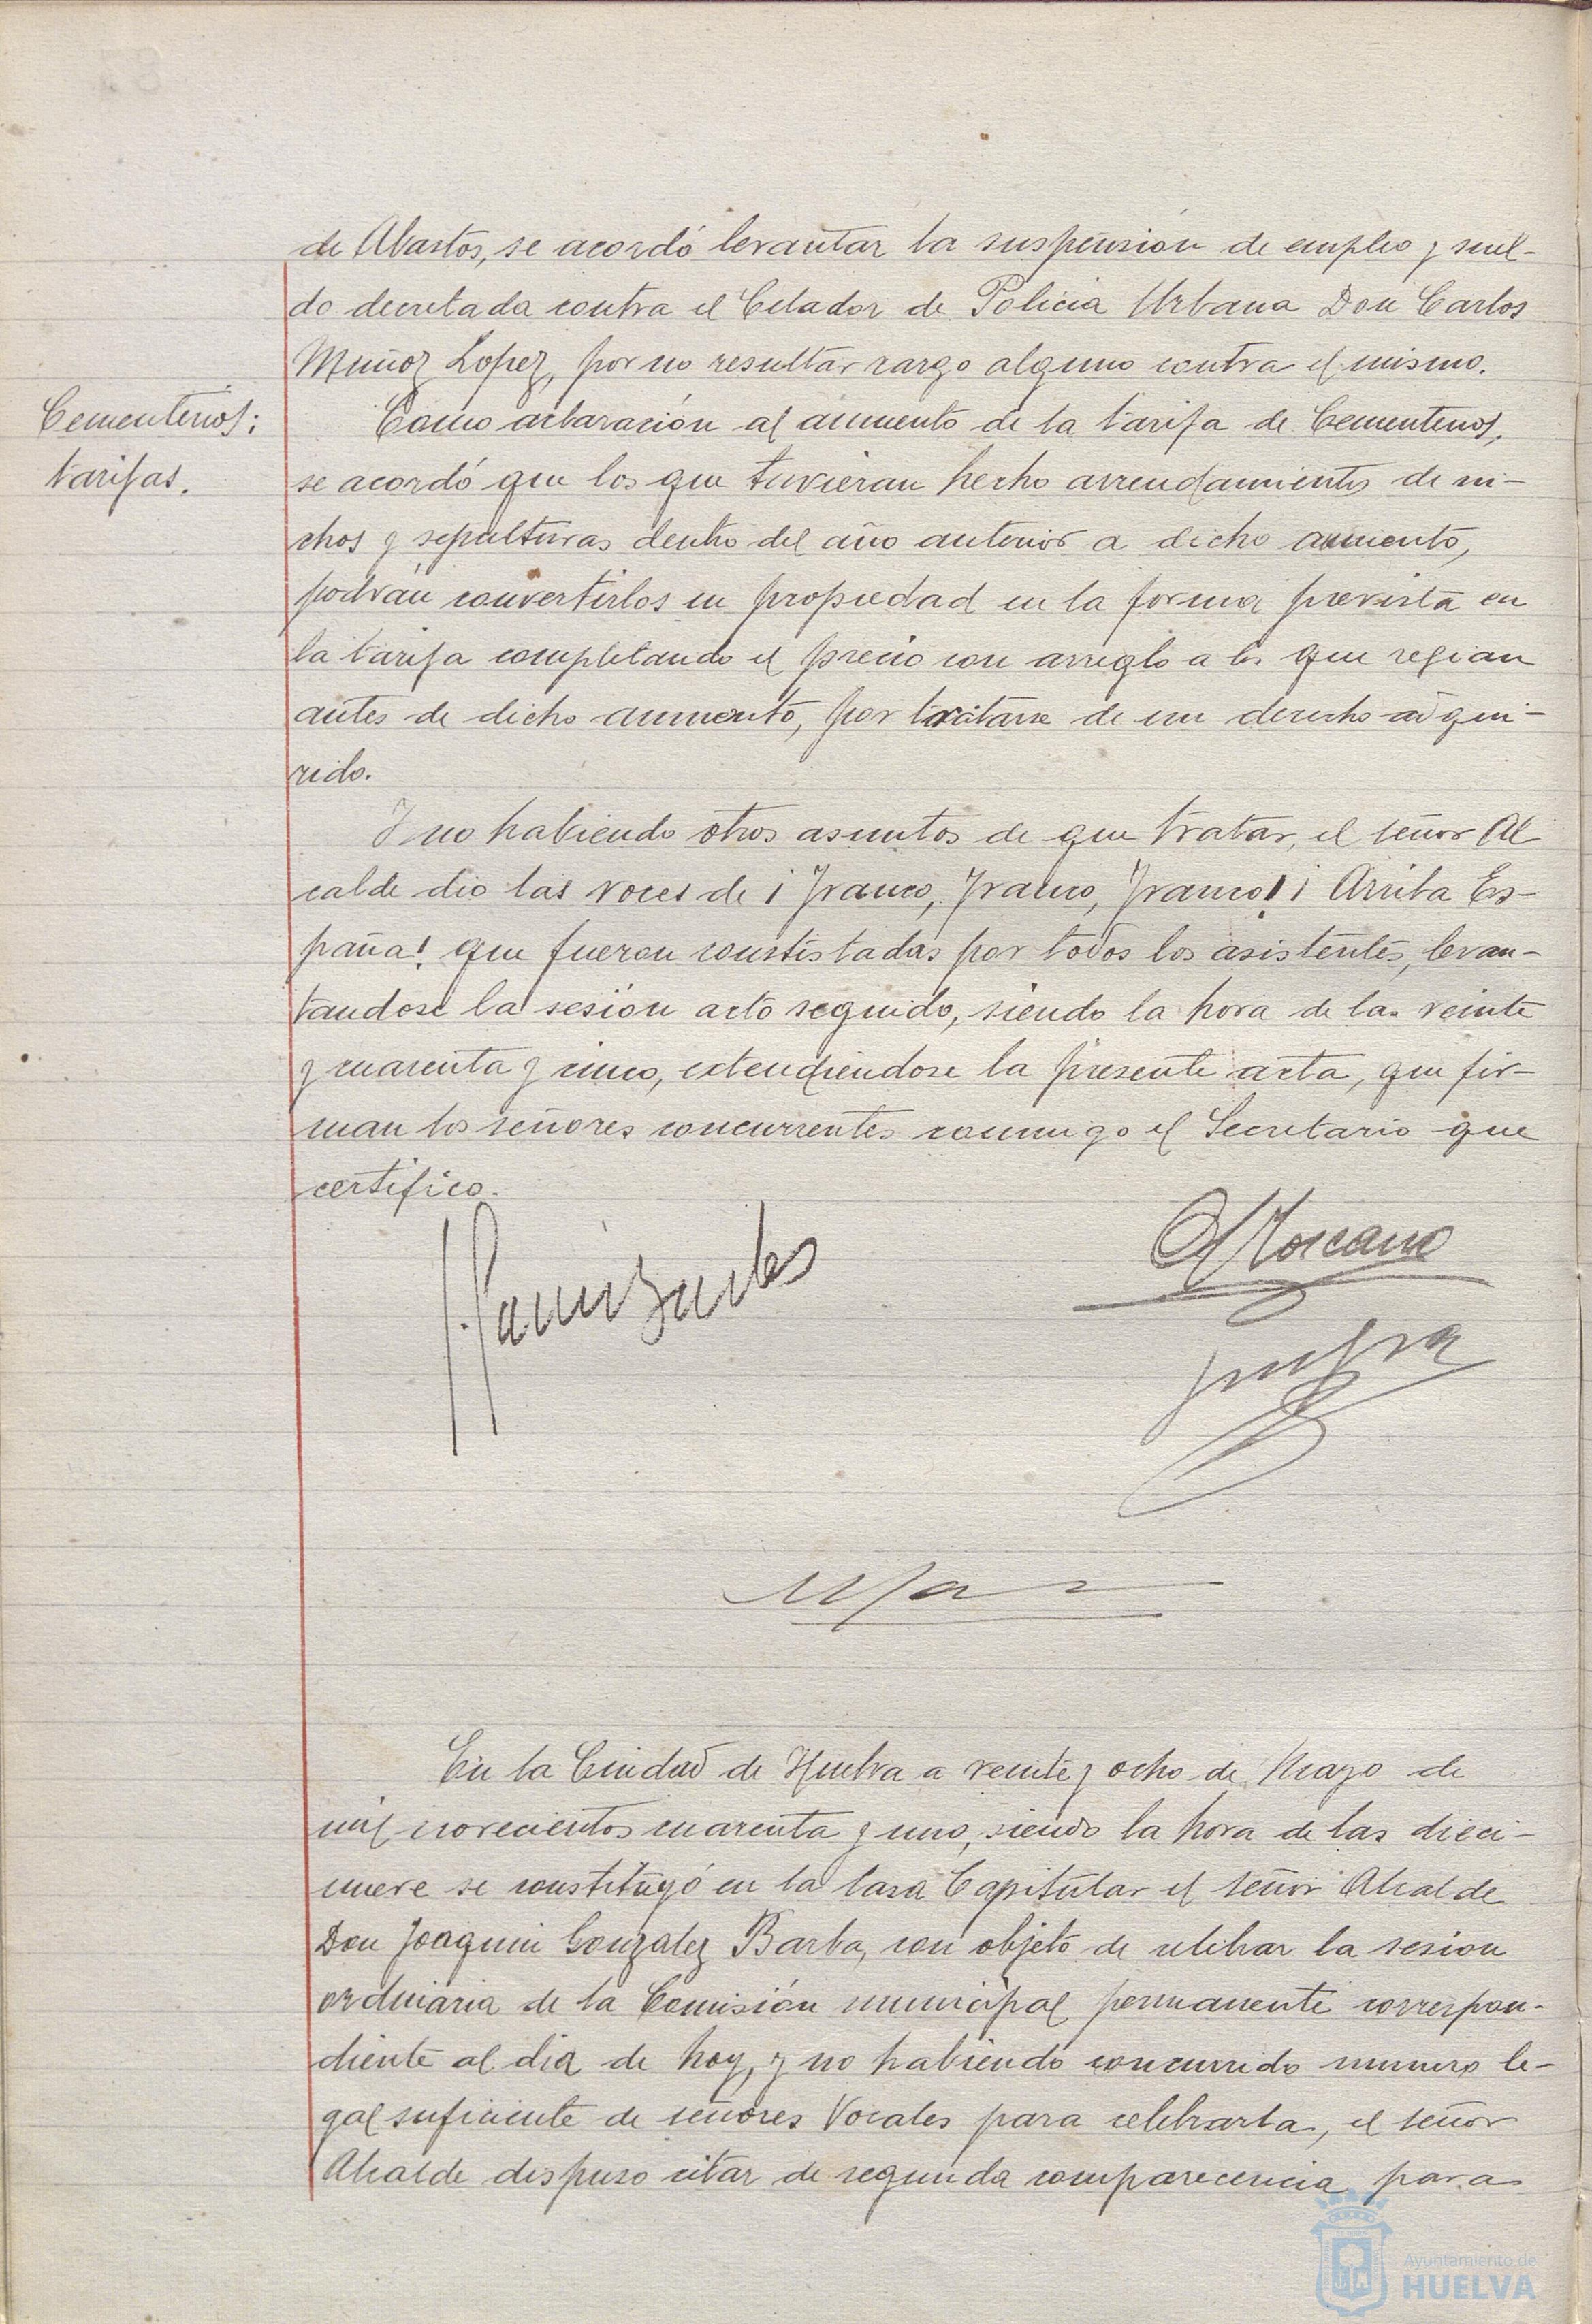 de Abastos, se acordó levantar la suspensión de empleo y suel-
do decretada contra el Celador de Policia Urbana Don Carlos
Muñoz Lopez, por no resultar cargo alguno contra el mismo.
Cementerios:
tarifas.
Como aclaración al aumento de la tarifa de Cementerios,
se acordó que los que tuvieran hecho arrendamientos de ni-
chos y sepulturas dentro del año anterior a dicho aumento,
podrán convertirlos en propiedad en la forma prevista en
la tarifa completando el precio con arreglo a los que regian
antes de dicho aumento, por tratarse de un derecho adqui-
rido.
Y no habiendo otros asuntos de que tratar, el señor Al
calde dio las voces de ¡Franco, Franco, Franco! ¡Arriba Es-
paña! que fueron constestadas por todos los asistentes, levan-
tandose la sesión acto seguido, siendo la hora de las veinte
y cuarenta y cinco, extendiendose la presente acta, que fir-
man los señores concurrentes conmigo el Secretario que
certifico.
En la Ciudad de Huelva a veinte y ocho de Mayo de
mil novecientos cuarenta y uno, siendo la hora de las dieci-
nueve se constituyó en la Casa Capitular el señor Alcalde
Don Joaquin Gonzalez Barba, con objeto de celebrar la sesion
ordinaria de la Comisión municipal permanente correspon-
diente al dia de hoy, y no habiendo concurrido numero le-
gal suficiente de señores Vocales para celebrarla, el señor
Alcalde dispuso citar de segunda comparecencia para
Ayuntamiento de
HUELVA